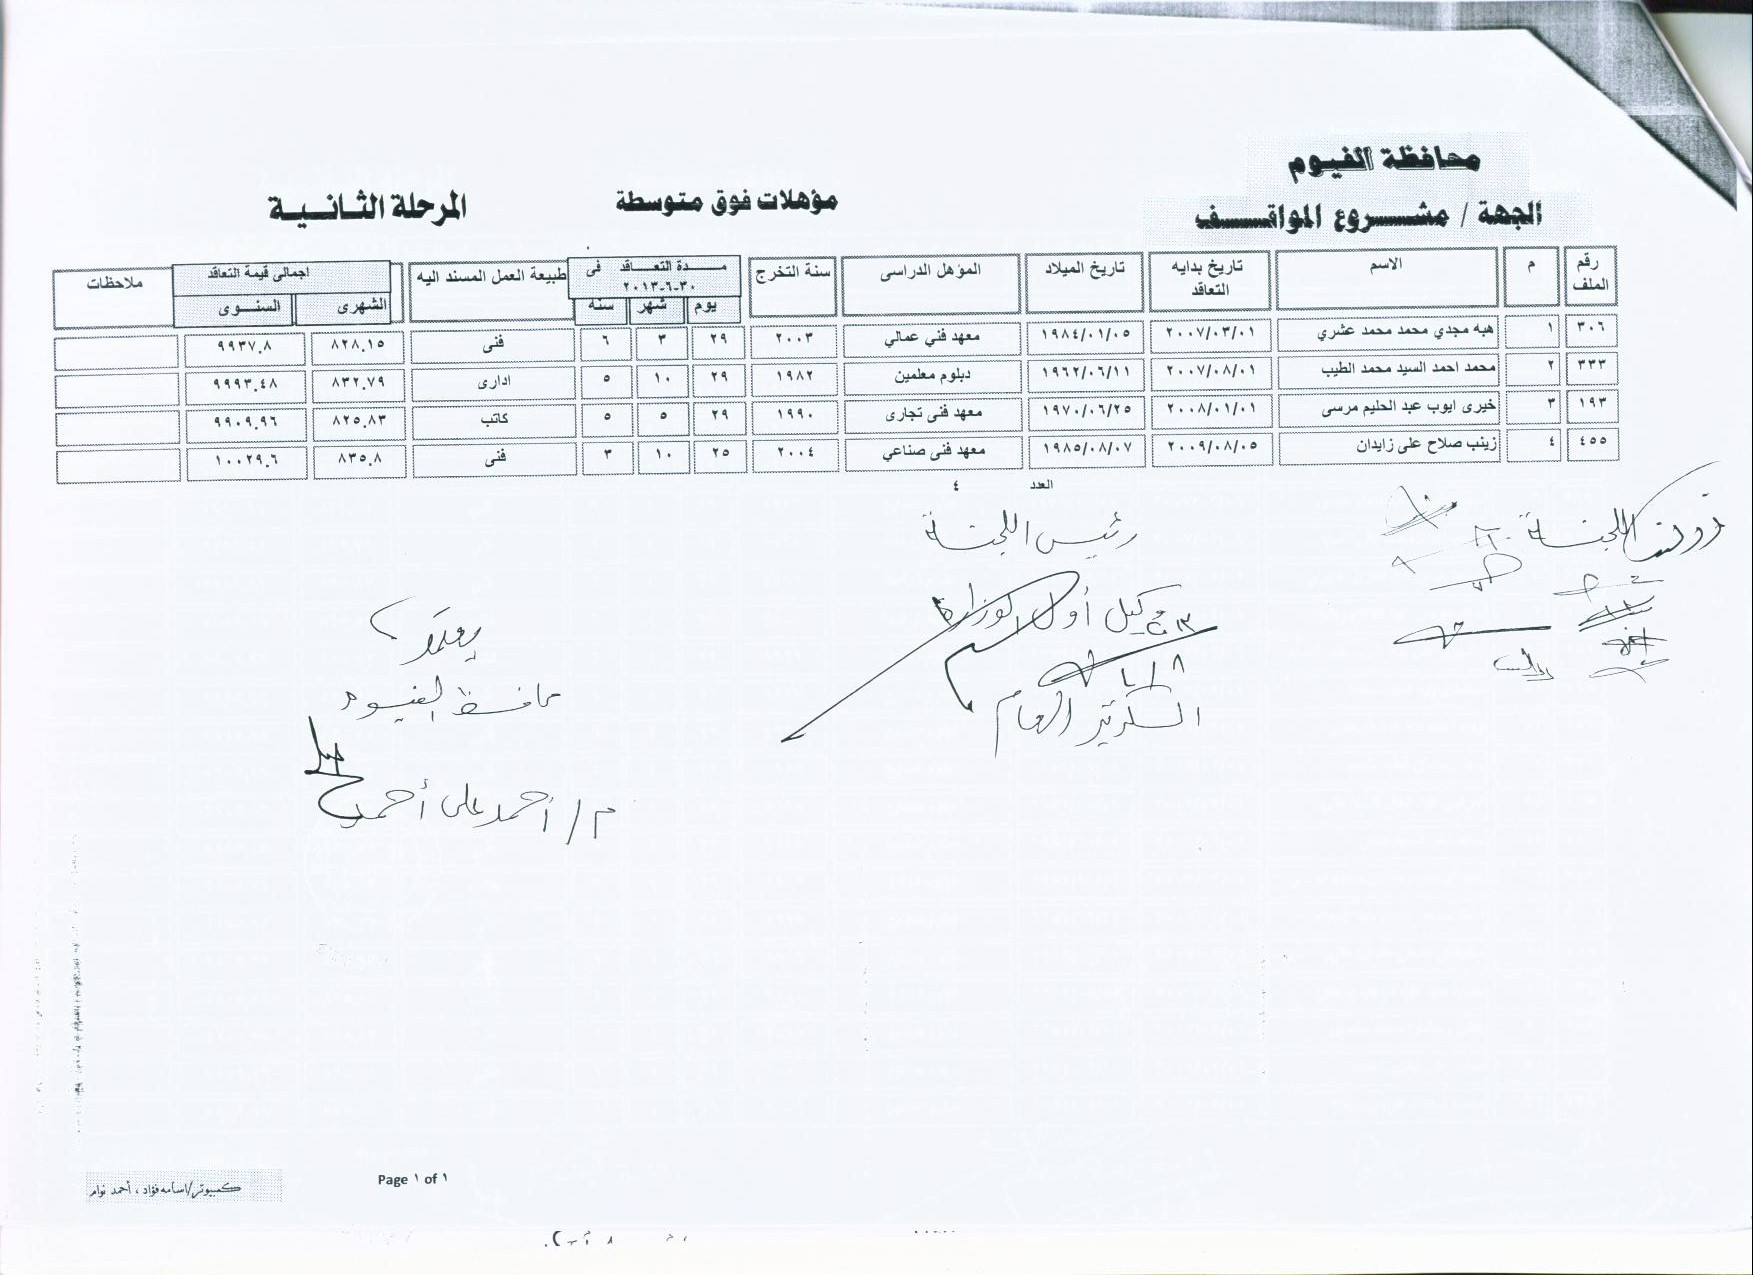 محافظة الفيوم
الجهة / مشـــروع المواقـــف
مؤهلات فوق متوسطة
المرحلة الثـانـيـة
رقم الملف م الاسم تاريخ بدايه التعاقد تاريخ الميلاد المؤهل الدراسى سنة التخرج مـــدة التعـــاقد فى ٣٠-٦-٢٠١٣ يوم شهر سنه طبيعة العمل المسند اليه اجمالى قيمة التعاقد الشهرى السنـــوى ملاحظات
٣٠٦ ١ هبه مجدي محمد محمد عشري ٢٠٠٧/٠٣/٠١ ١٩٨٤/٠١/٠٥ معهد فني عمالي ٢٠٠٣ ٢٩ ٣ ٦ فنى ٨٢٨.١٥ ٩٩٣٧.٨
٣٣٣ ٢ محمد احمد السيد محمد الطيب ٢٠٠٧/٠٨/٠١ ١٩٦٢/٠٦/١١ دبلوم معلمين ١٩٨٢ ٢٩ ١٠ ٥ ادارى ٨٣٢.٧٩ ٩٩٩٣.٤٨
١٩٣ ٣ خيرى ايوب عبد الحليم مرسى ٢٠٠٨/٠١/٠١ ١٩٧٠/٠٦/٢٥ معهد فنى تجارى ١٩٩٠ ٢٩ ٥ ٥ كاتب ٨٢٥.٨٣ ٩٩٠٩.٩٦
٤٥٥ ٤ زينب صلاح على زايدان ٢٠٠٩/٠٨/٠٥ ١٩٨٥/٠٨/٠٧ معهد فنى صناعي ٢٠٠٤ ٢٥ ١٠ ٣ فنى ٨٣٥.٨ ١٠٠٢٩.٦
العدد ٤
اللجنة
رئيس اللجنة
وكيل أول الوزارة
السكرتير العام
يعتمد
محافظ الفيوم
م/ أحمد على أحمد
Page ١ of ١
كمبيوتر/اسامه فؤاد ، أحمد نوام